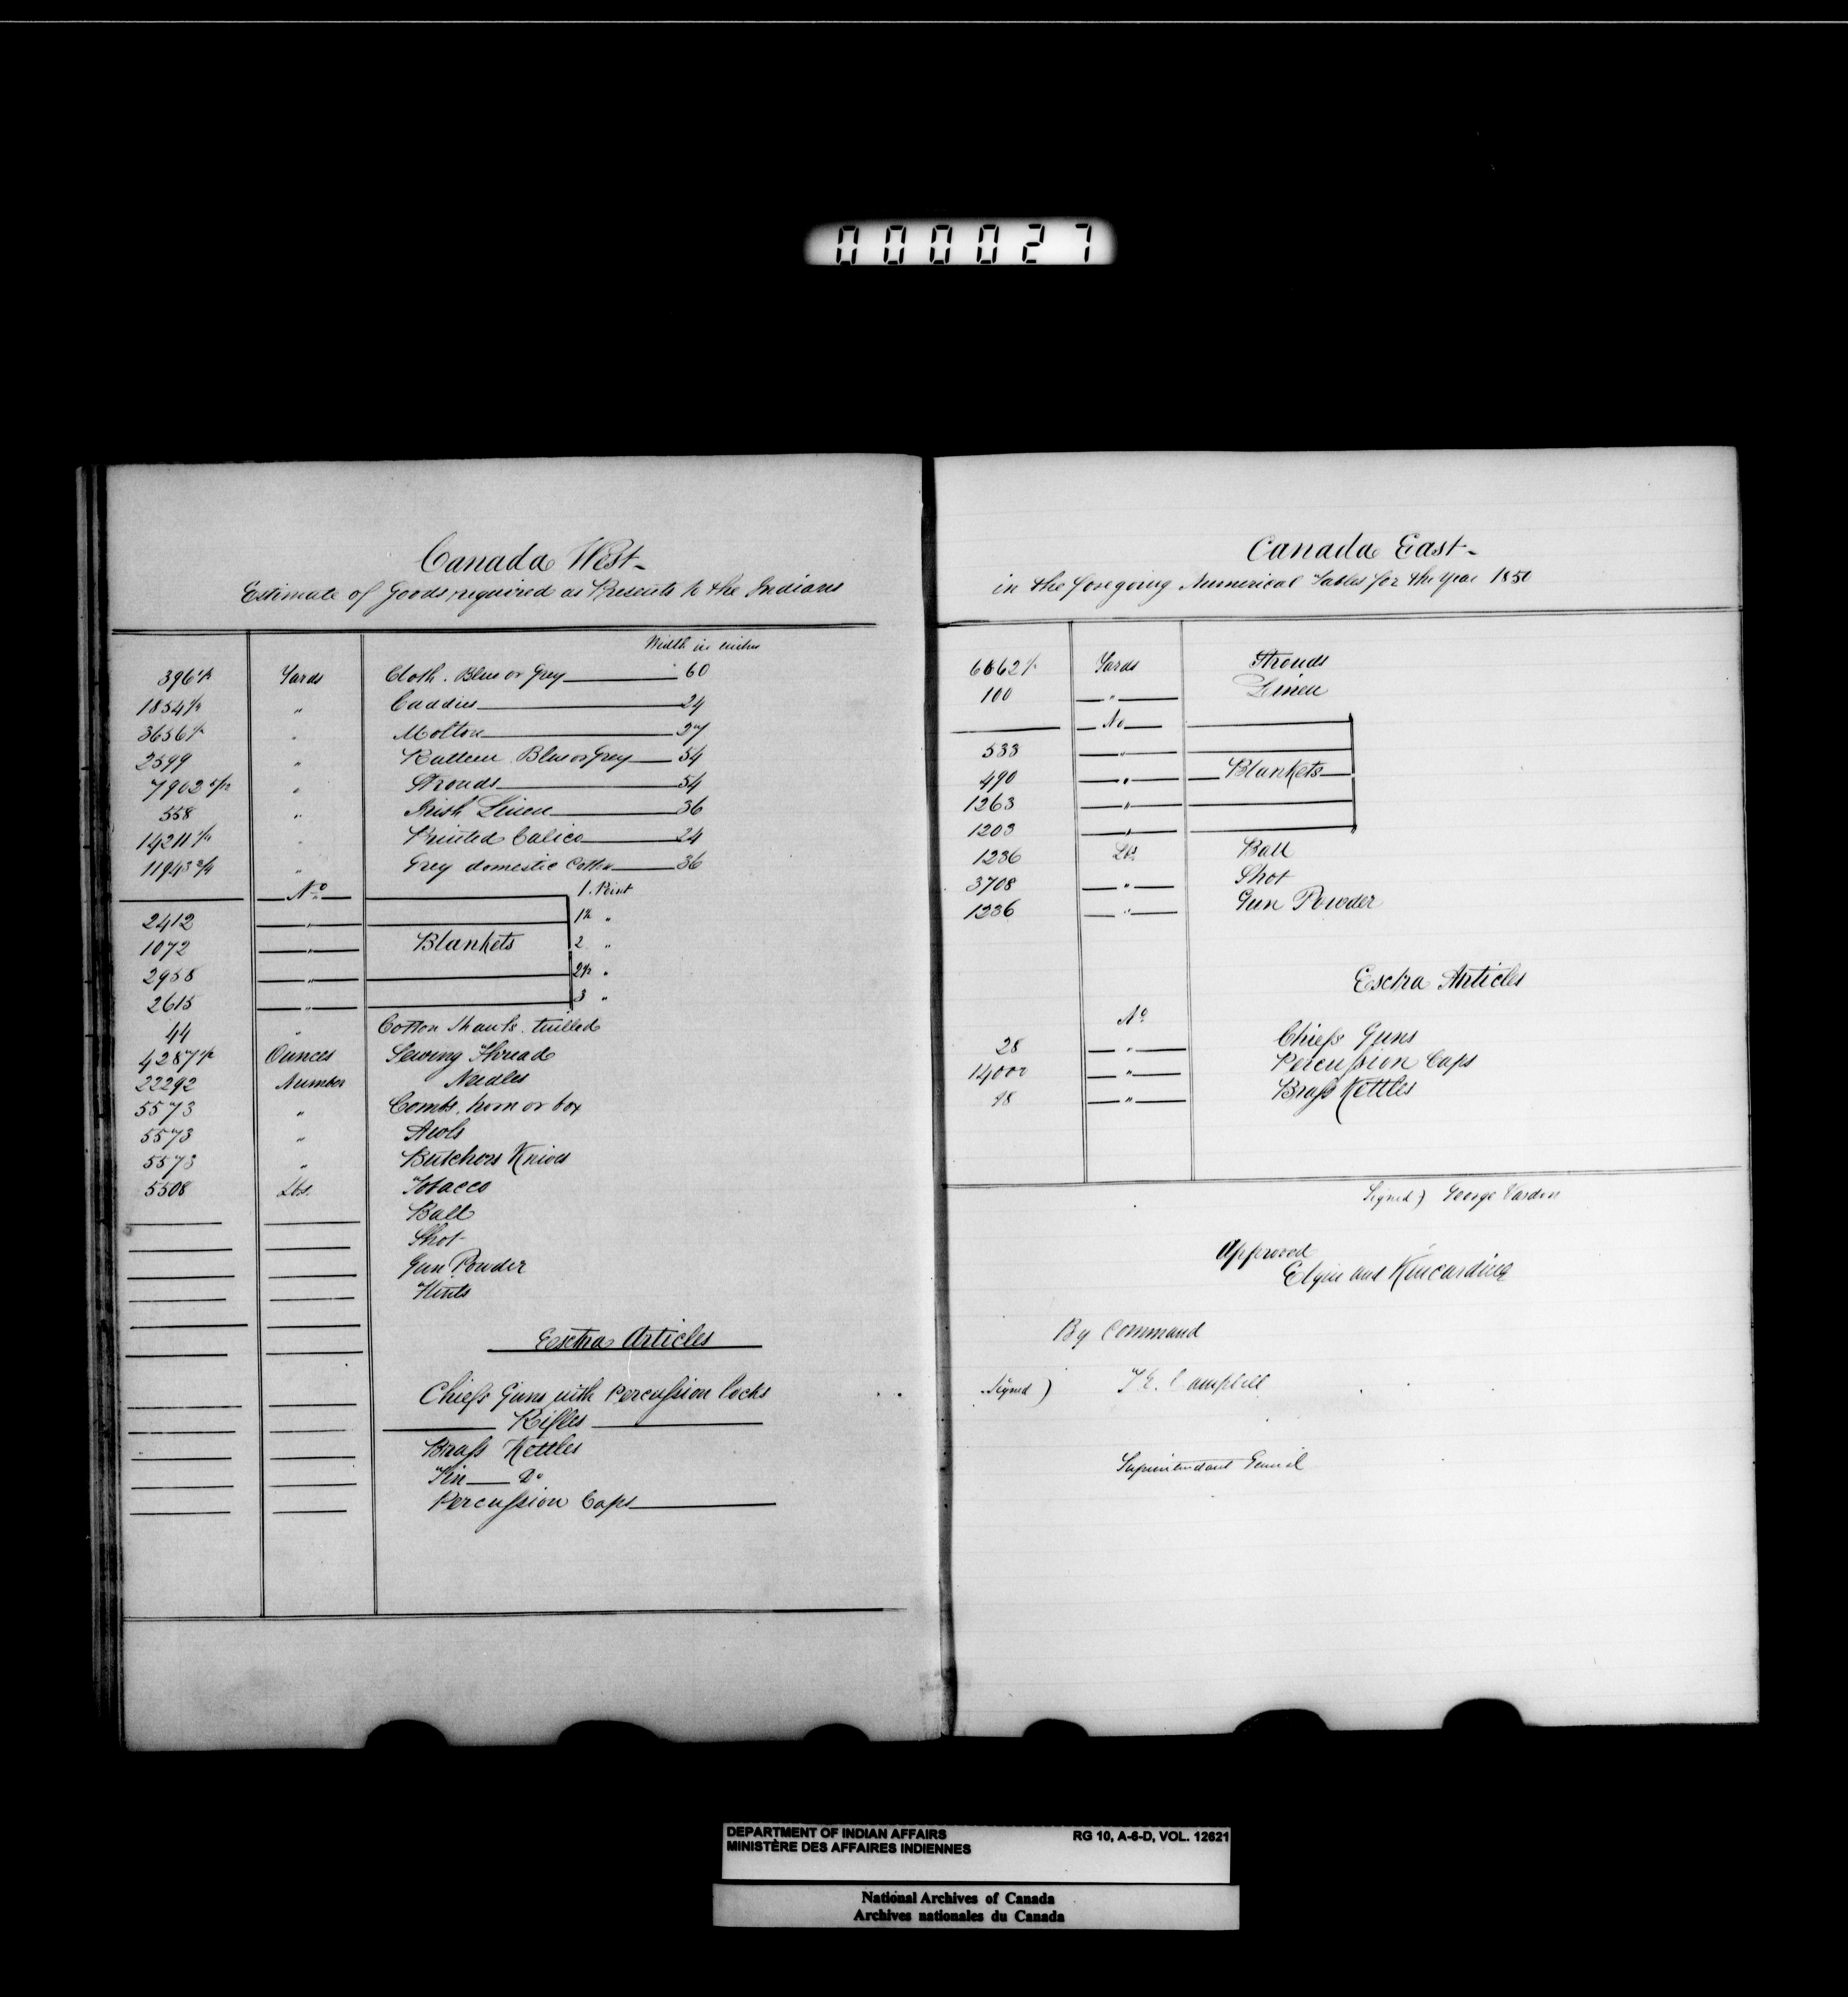 000027
Canada West-
Estimate of Goods required as Presents to the Indians
Width in inches
396 1/2 Yards Cloth. Blue or Grey 60
1854 1/2 " Caddies 24
3656 1/2 " Molton 27
2599 " Ratteen Blue or Grey 54
7902 " Strouds 54
558 " Irish Linen 36
14211 1/2 " Printed Calico 24
11943 3/4 " Grey domestic Cotton 36
No. 1. Point
2412 " 1 1/2 "
1072 " Blankets 2 "
2958 " 2 1/2 "
2615 " 3 "
44 " Cotton Shawls. twilled
4287 1/2 Ounces Sewing Thread
22292 Number Needles
5573 " Combs. horn or box
5573 " Awls
5573 " Butchers Knives
5508 Lbs. Tobacco
Ball
Shot
Gun Powder
Flints
Esctra Articles
Chiefs Guns with Percussion locks
Rifles
Brass Kettles
Tin Do
Percussion Caps
Canada East-
in the foregoing Numerical Tables for the Year 1850
Yards Strouds
100 " Linen
No
533 "
490 " Blankets
1263 "
1203 "
1236 Lbs. Ball
3708 " Shot
1236 " Gun Powder
Esctra Articles
No
28 " Chiefs Guns
14000 " Percussion Caps
18 " Brass Kettles
Signed) George Vardon
Approved
Elgin and Kincardine
By Command
Signed) T. E. Campbell
Superintendant General
DEPARTMENT OF INDIAN AFFAIRS RG 10, A-6-D, VOL. 12621
MINISTÈRE DES AFFAIRES INDIENNES
National Archives of Canada
Archives nationales du Canada